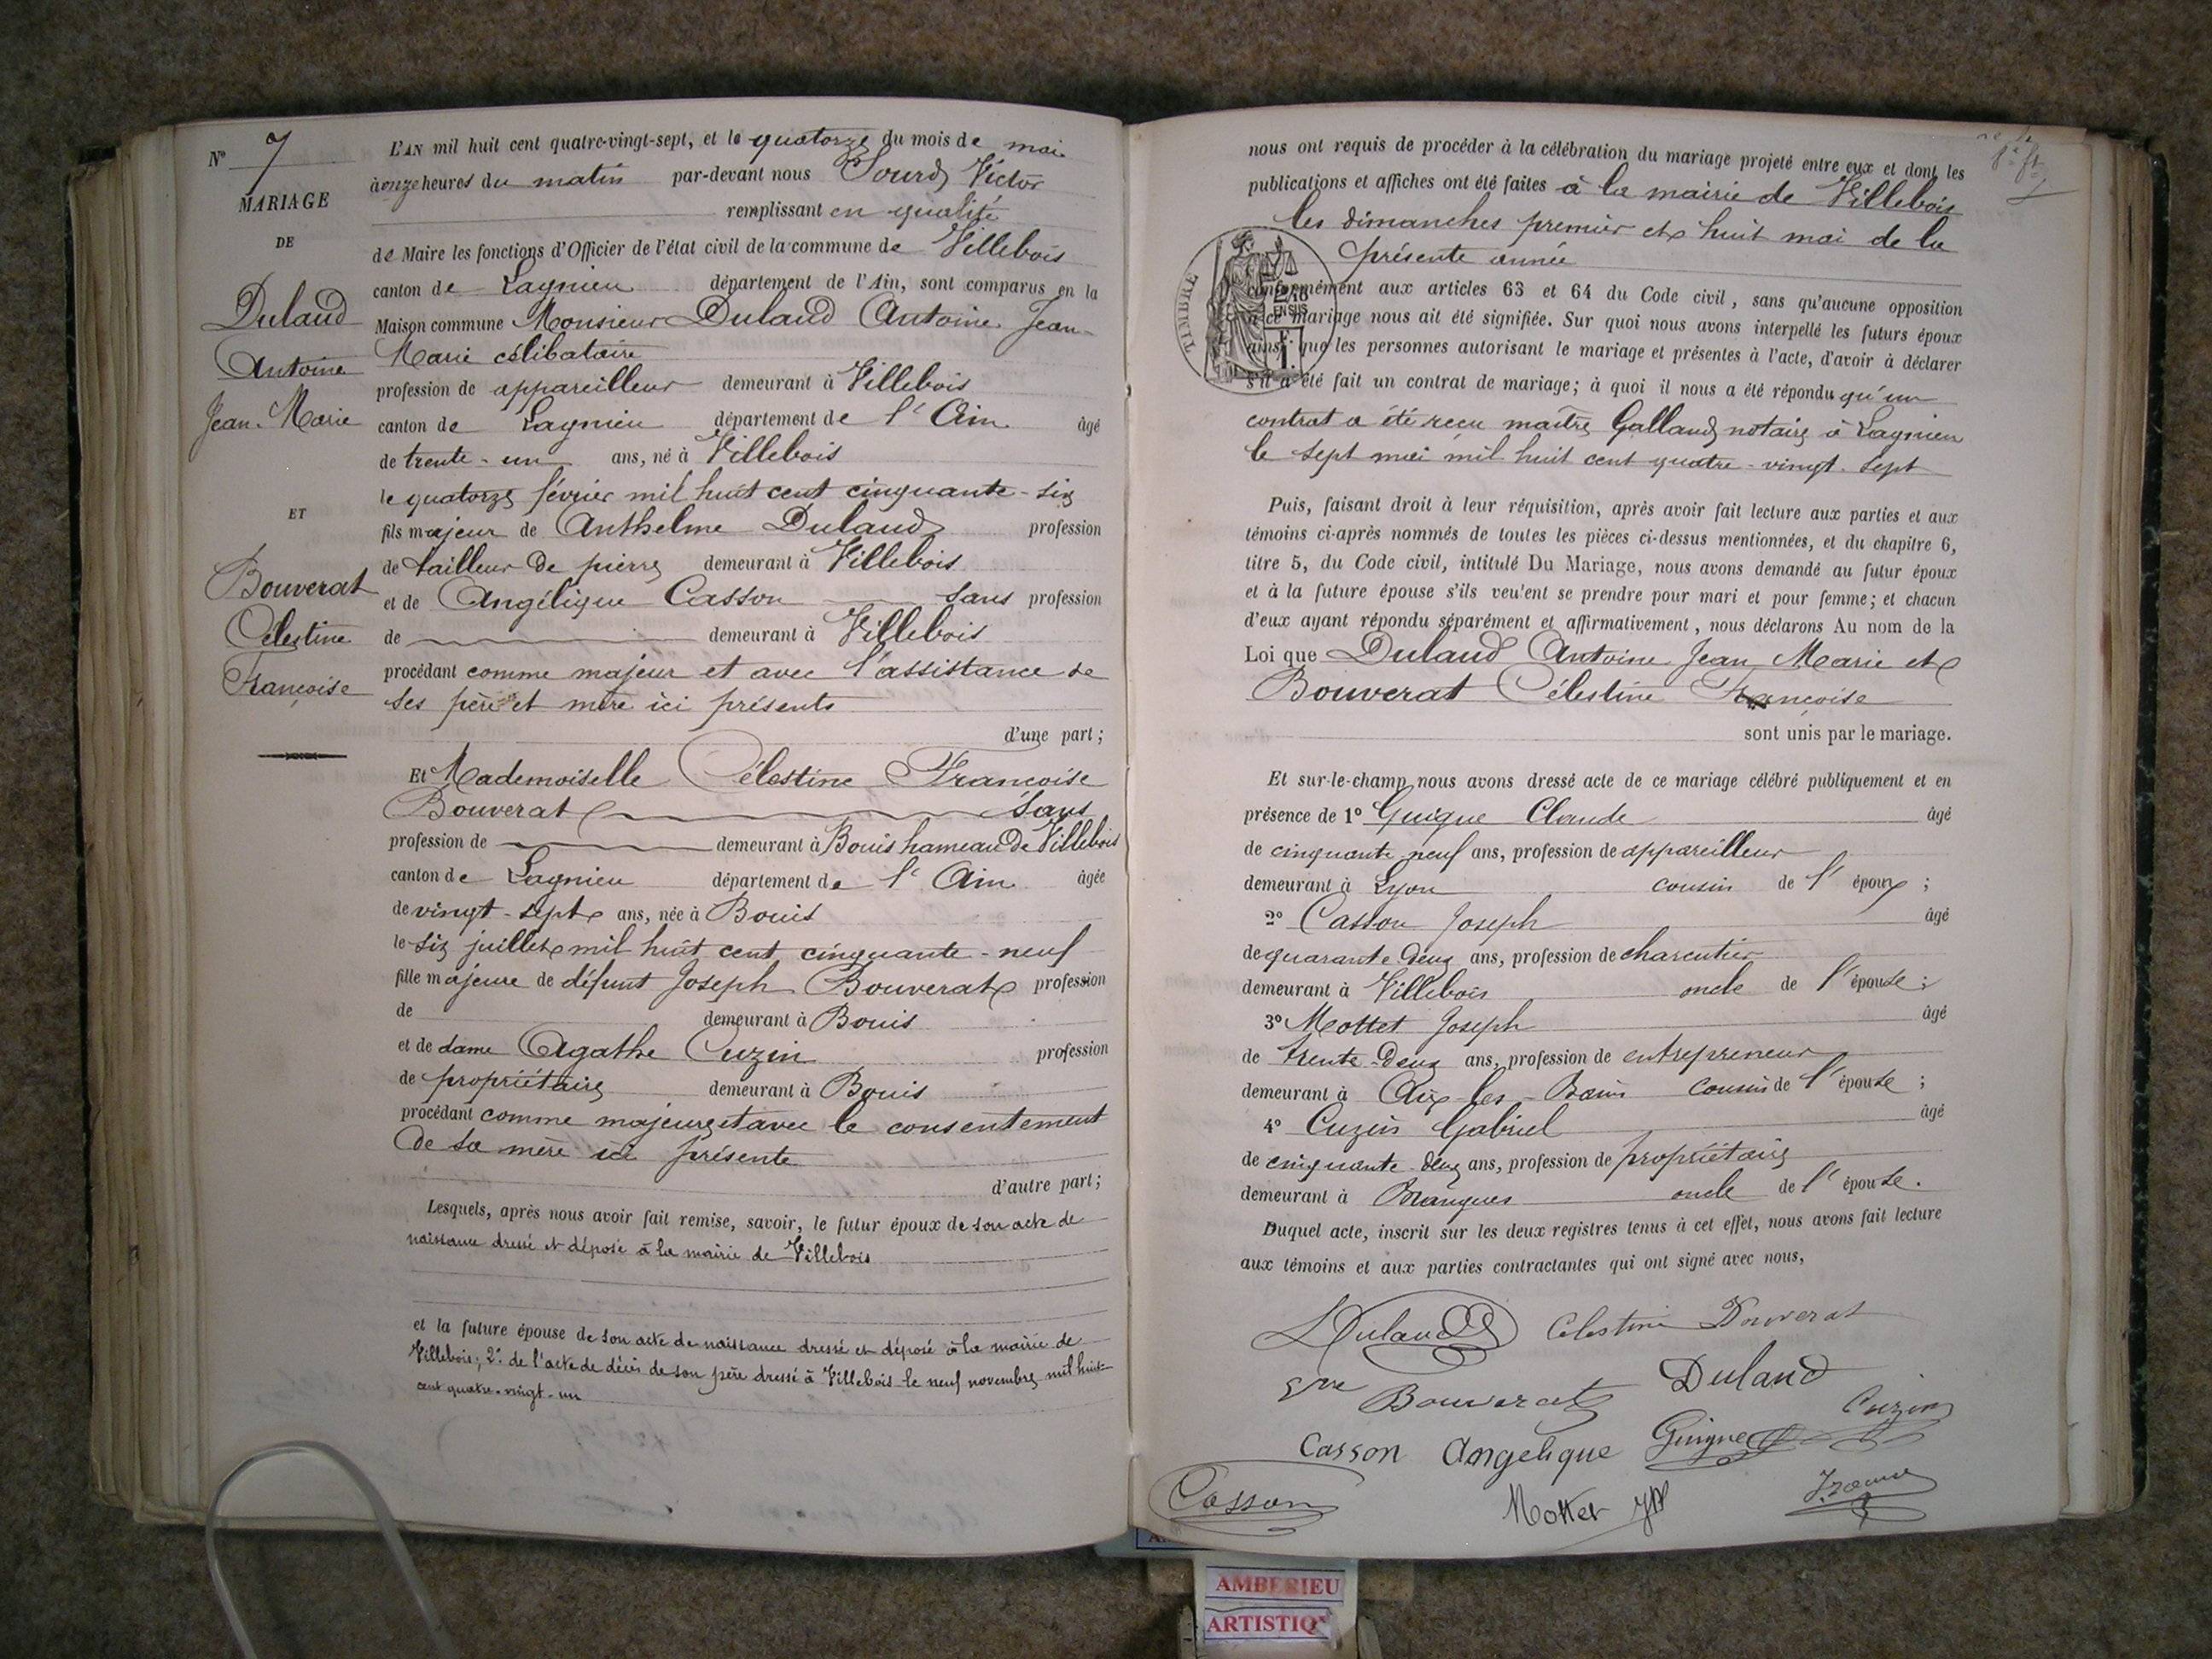 N° 7
MARIAGE
DE
Dulaud
Antoine
Jean-Marie
ET
Bouverat
Célestine
Françoise
L'AN mil huit cent quatre-vingt-sept, et le quatorze du mois de mai
à onze heures du matin par-devant nous Sourd Victor
remplissant en qualité
de Maire les fonctions d'Officier de l'état civil de la commune de Villebois
canton de Lagnieu département de l'Ain, sont comparus en la
Maison commune Monsieur Dulaud Antoine Jean-
Marie célibataire
profession de appareilleur demeurant à Villebois
canton de Lagnieu département de l'Ain âgé
de trente-un ans, né à Villebois
le quatorze février mil huit cent cinquante-six
fils majeur de Anthelme Dulaud profession
de tailleur de pierre demeurant à Villebois
et de Angélique Casson sans profession
de demeurant à Villebois
procédant comme majeur et avec l'assistance de
ses père et mère ici présents
d'une part;
Et Mademoiselle Célestine Françoise
Bouverat sans
profession de demeurant à Bouis hameau de Villebois
canton de Lagnieu département de l'Ain âgée
de vingt-sept ans, née à Bouis
le six juillet mil huit cent cinquante-neuf
fille majeure de défunt Joseph Bouverat profession
de demeurant à Bouis
et de dame Agathe Cuzin profession
de propriétaire demeurant à Bouis
procédant comme majeure et avec le consentement
de sa mère ici présente
d'autre part;
Lesquels, après nous avoir fait remise, savoir, le futur époux de son acte de
naissance dressé et déposé à la mairie de Villebois
et la future épouse de son acte de naissance dressé et déposé à la mairie de
Villebois; 2° de l'acte de décès de son père dressé à Villebois le neuf novembre mil huit
cent quatre-vingt-un
nous ont requis de procéder à la célébration du mariage projeté entre eux et dont les
publications et affiches ont été faites à la mairie de Villebois
les dimanches premier et huit mai de la
présente année
TIMBRE
conformément aux articles 63 et 64 du Code civil, sans qu'aucune opposition
à ce mariage nous ait été signifiée. Sur quoi nous avons interpellé les futurs époux
ainsi que les personnes autorisant le mariage et présentes à l'acte, d'avoir à déclarer
s'il a été fait un contrat de mariage; à quoi il nous a été répondu qu'un
contrat a été reçu maître Galland notaire à Lagnieu
le sept mai mil huit cent quatre-vingt-sept
Puis, faisant droit à leur réquisition, après avoir fait lecture aux parties et aux
témoins ci-après nommés de toutes les pièces ci-dessus mentionnées, et du chapitre 6,
titre 5, du Code civil, intitulé Du Mariage, nous avons demandé au futur époux
et à la future épouse s'ils veu'ent se prendre pour mari et pour femme; et chacun
d'eux ayant répondu séparément et affirmativement, nous déclarons Au nom de la
Loi que Dulaud Antoine Jean Marie et
Bouverat Célestine Françoise
sont unis par le mariage.
Et sur-le-champ nous avons dressé acte de ce mariage célébré publiquement et en
présence de 1° Guigue Claude âgé
de cinquante neuf ans, profession de appareilleur
demeurant à Lyon cousin de l'époux;
2° Casson Joseph âgé
de quarante deux ans, profession de charcutier
demeurant à Villebois oncle de l'épouse;
3° Mottet Joseph âgé
de trente-deux ans, profession de entrepreneur
demeurant à Aix-les-Bains cousin de l'épouse;
4° Cuzin Gabriel âgé
de cinquante-deux ans, profession de propriétaire
demeurant à Brangues oncle de l'épouse.
Duquel acte, inscrit sur les deux registres tenus à cet effet, nous avons fait lecture
aux témoins et aux parties contractantes qui ont signé avec nous,
Dulaud Celestine Bouverat
Bouverat Dulaud
Cuzin
Casson Angelique Guigue
Casson Mottet
AMBERIEU
ARTISTIQ